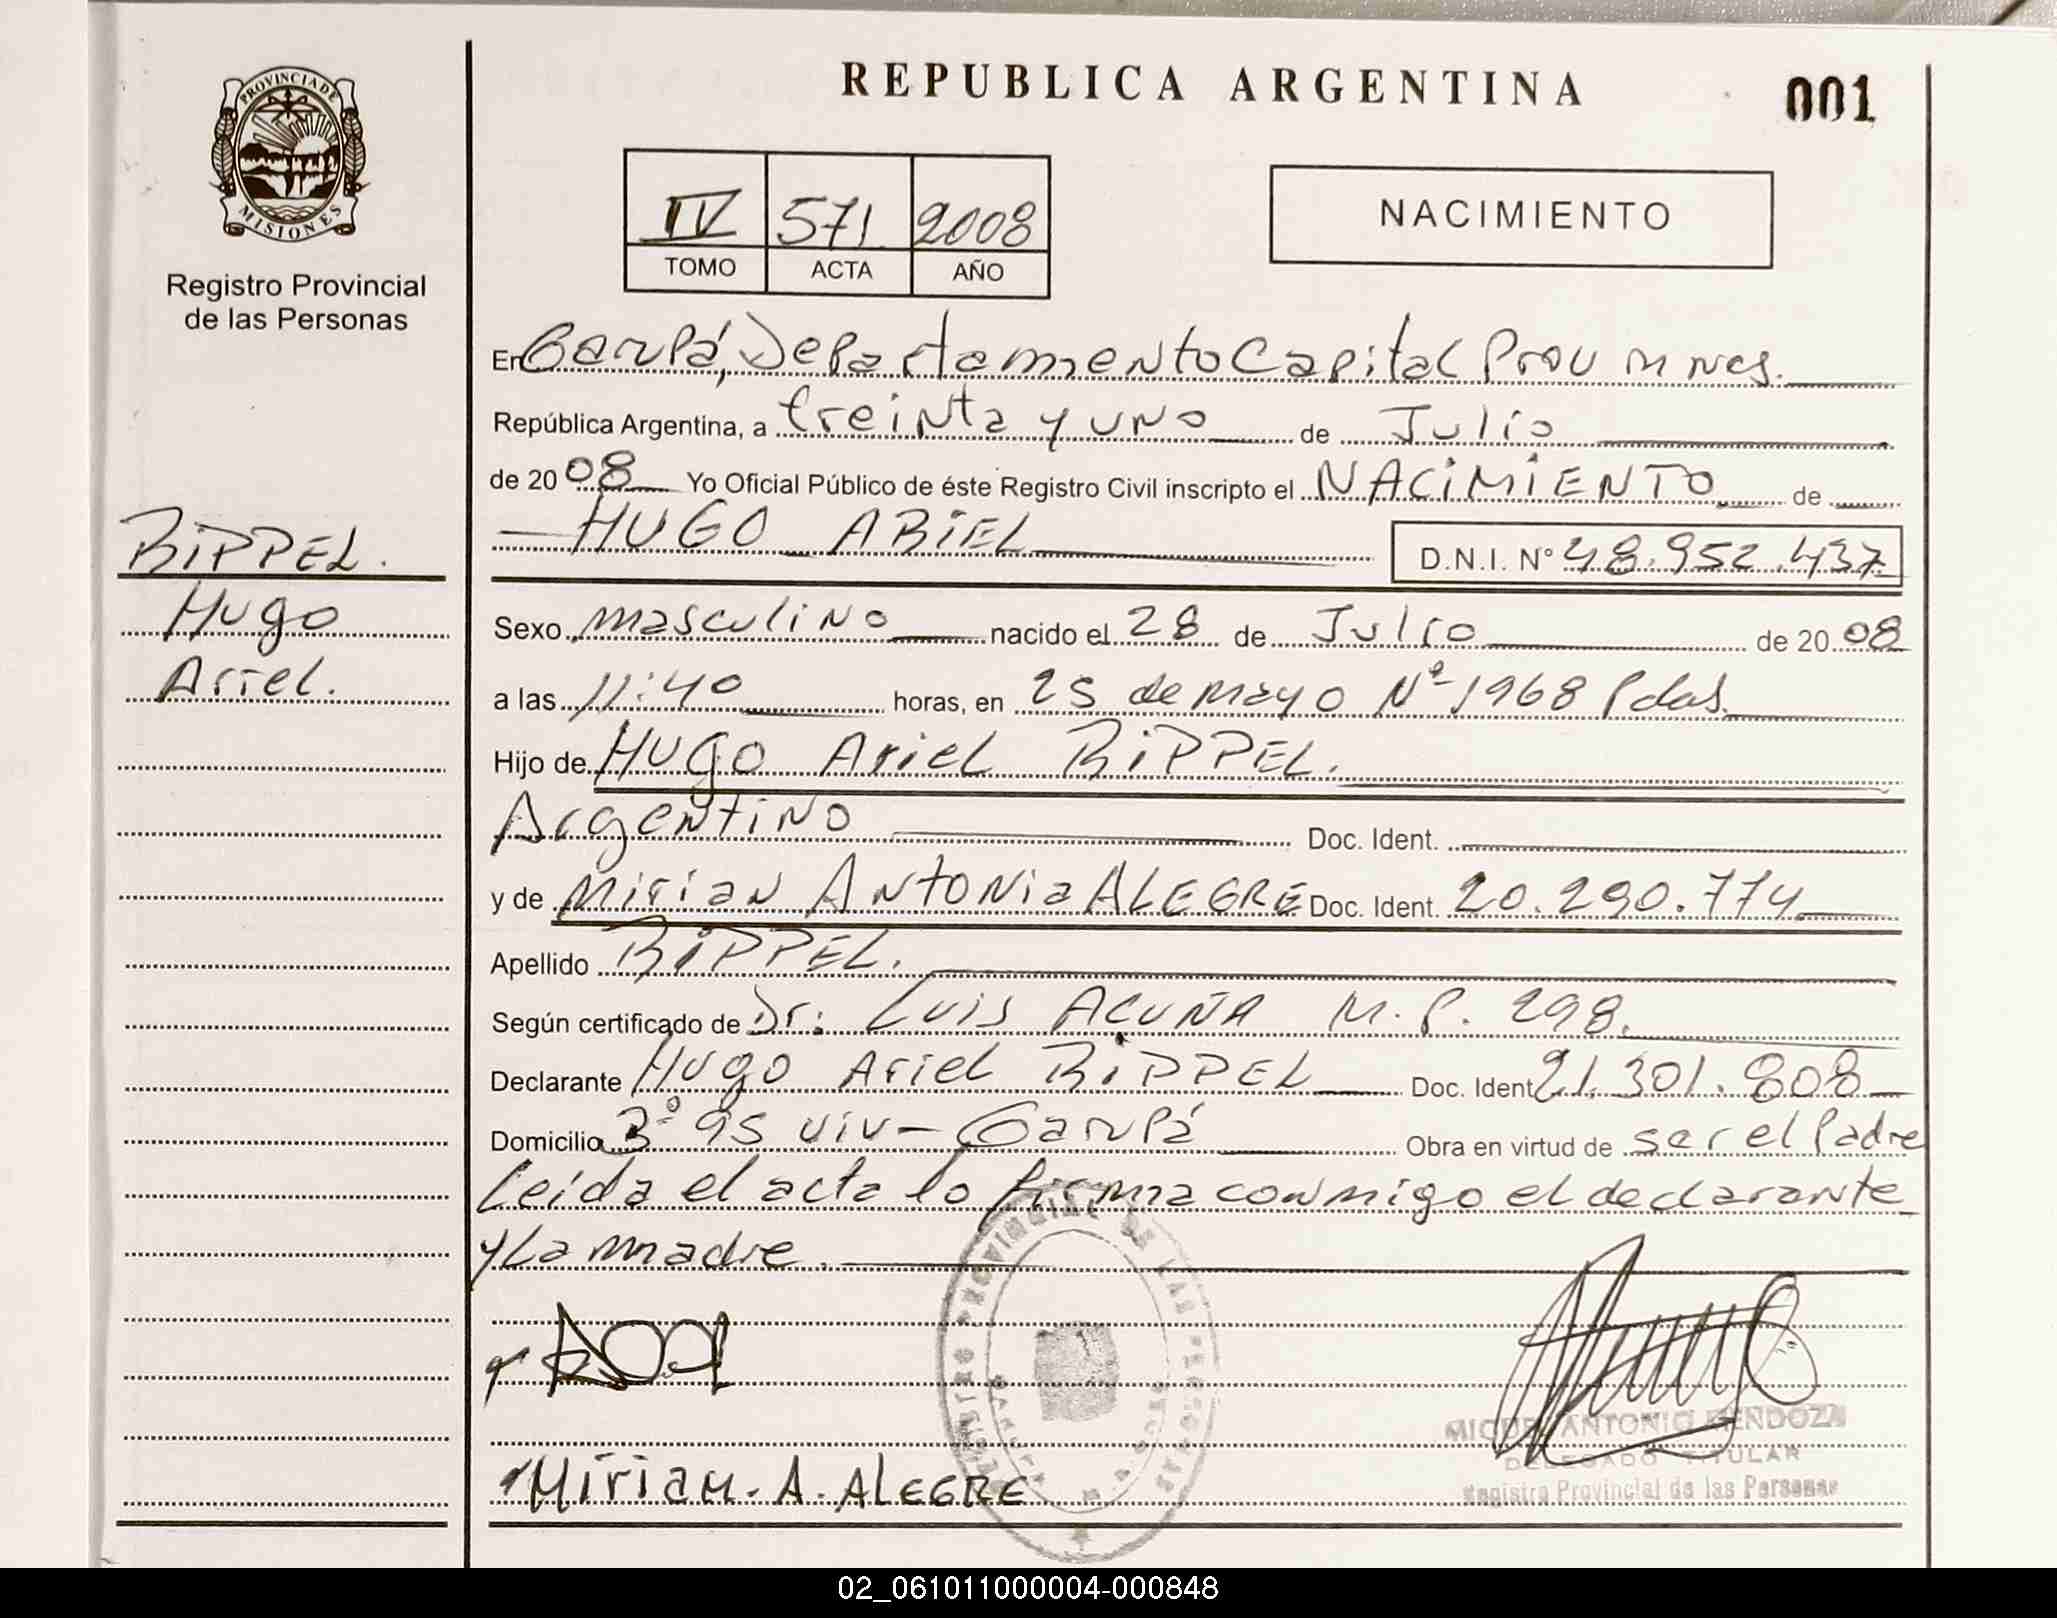 REPUBLICA ARGENTINA
001
PROVINCIA DE
MISIONES
Registro Provincial
de las Personas
IV 571 2008
TOMO ACTA AÑO
NACIMIENTO
En Garupá, Departamento Capital Prov Mnes.
República Argentina, a treinta y uno de Julio
de 2008 Yo Oficial Público de éste Registro Civil inscripto el NACIMIENTO de
HUGO ARIEL
D.N.I. Nº 48.952.437
RIPPEL.
Hugo
Ariel.
Sexo masculino nacido el 28 de Julio de 2008
a las 11:40 horas, en 25 de mayo Nº 1968 Pdas.
Hijo de Hugo Ariel RIPPEL.
Argentino Doc. Ident.
y de Mirian Antonia ALEGRE Doc. Ident. 20.290.774
Apellido RIPPEL.
Según certificado de Dr: Luis ACUÑA M.P. 298.
Declarante Hugo Ariel RIPPEL Doc. Ident 21.301.808
Domicilio Bº 95 viv - Garupá Obra en virtud de ser el Padre
Leida el acta lo firma conmigo el declarante
y La madre.
REGISTRO PROVINCIAL DE LAS PERSONAS
MIGUEL ANTONIO MENDOZA
DELEGADO TITULAR
Registro Provincial de las Personas
Miriam. A. ALEGRE
02_061011000004-000848